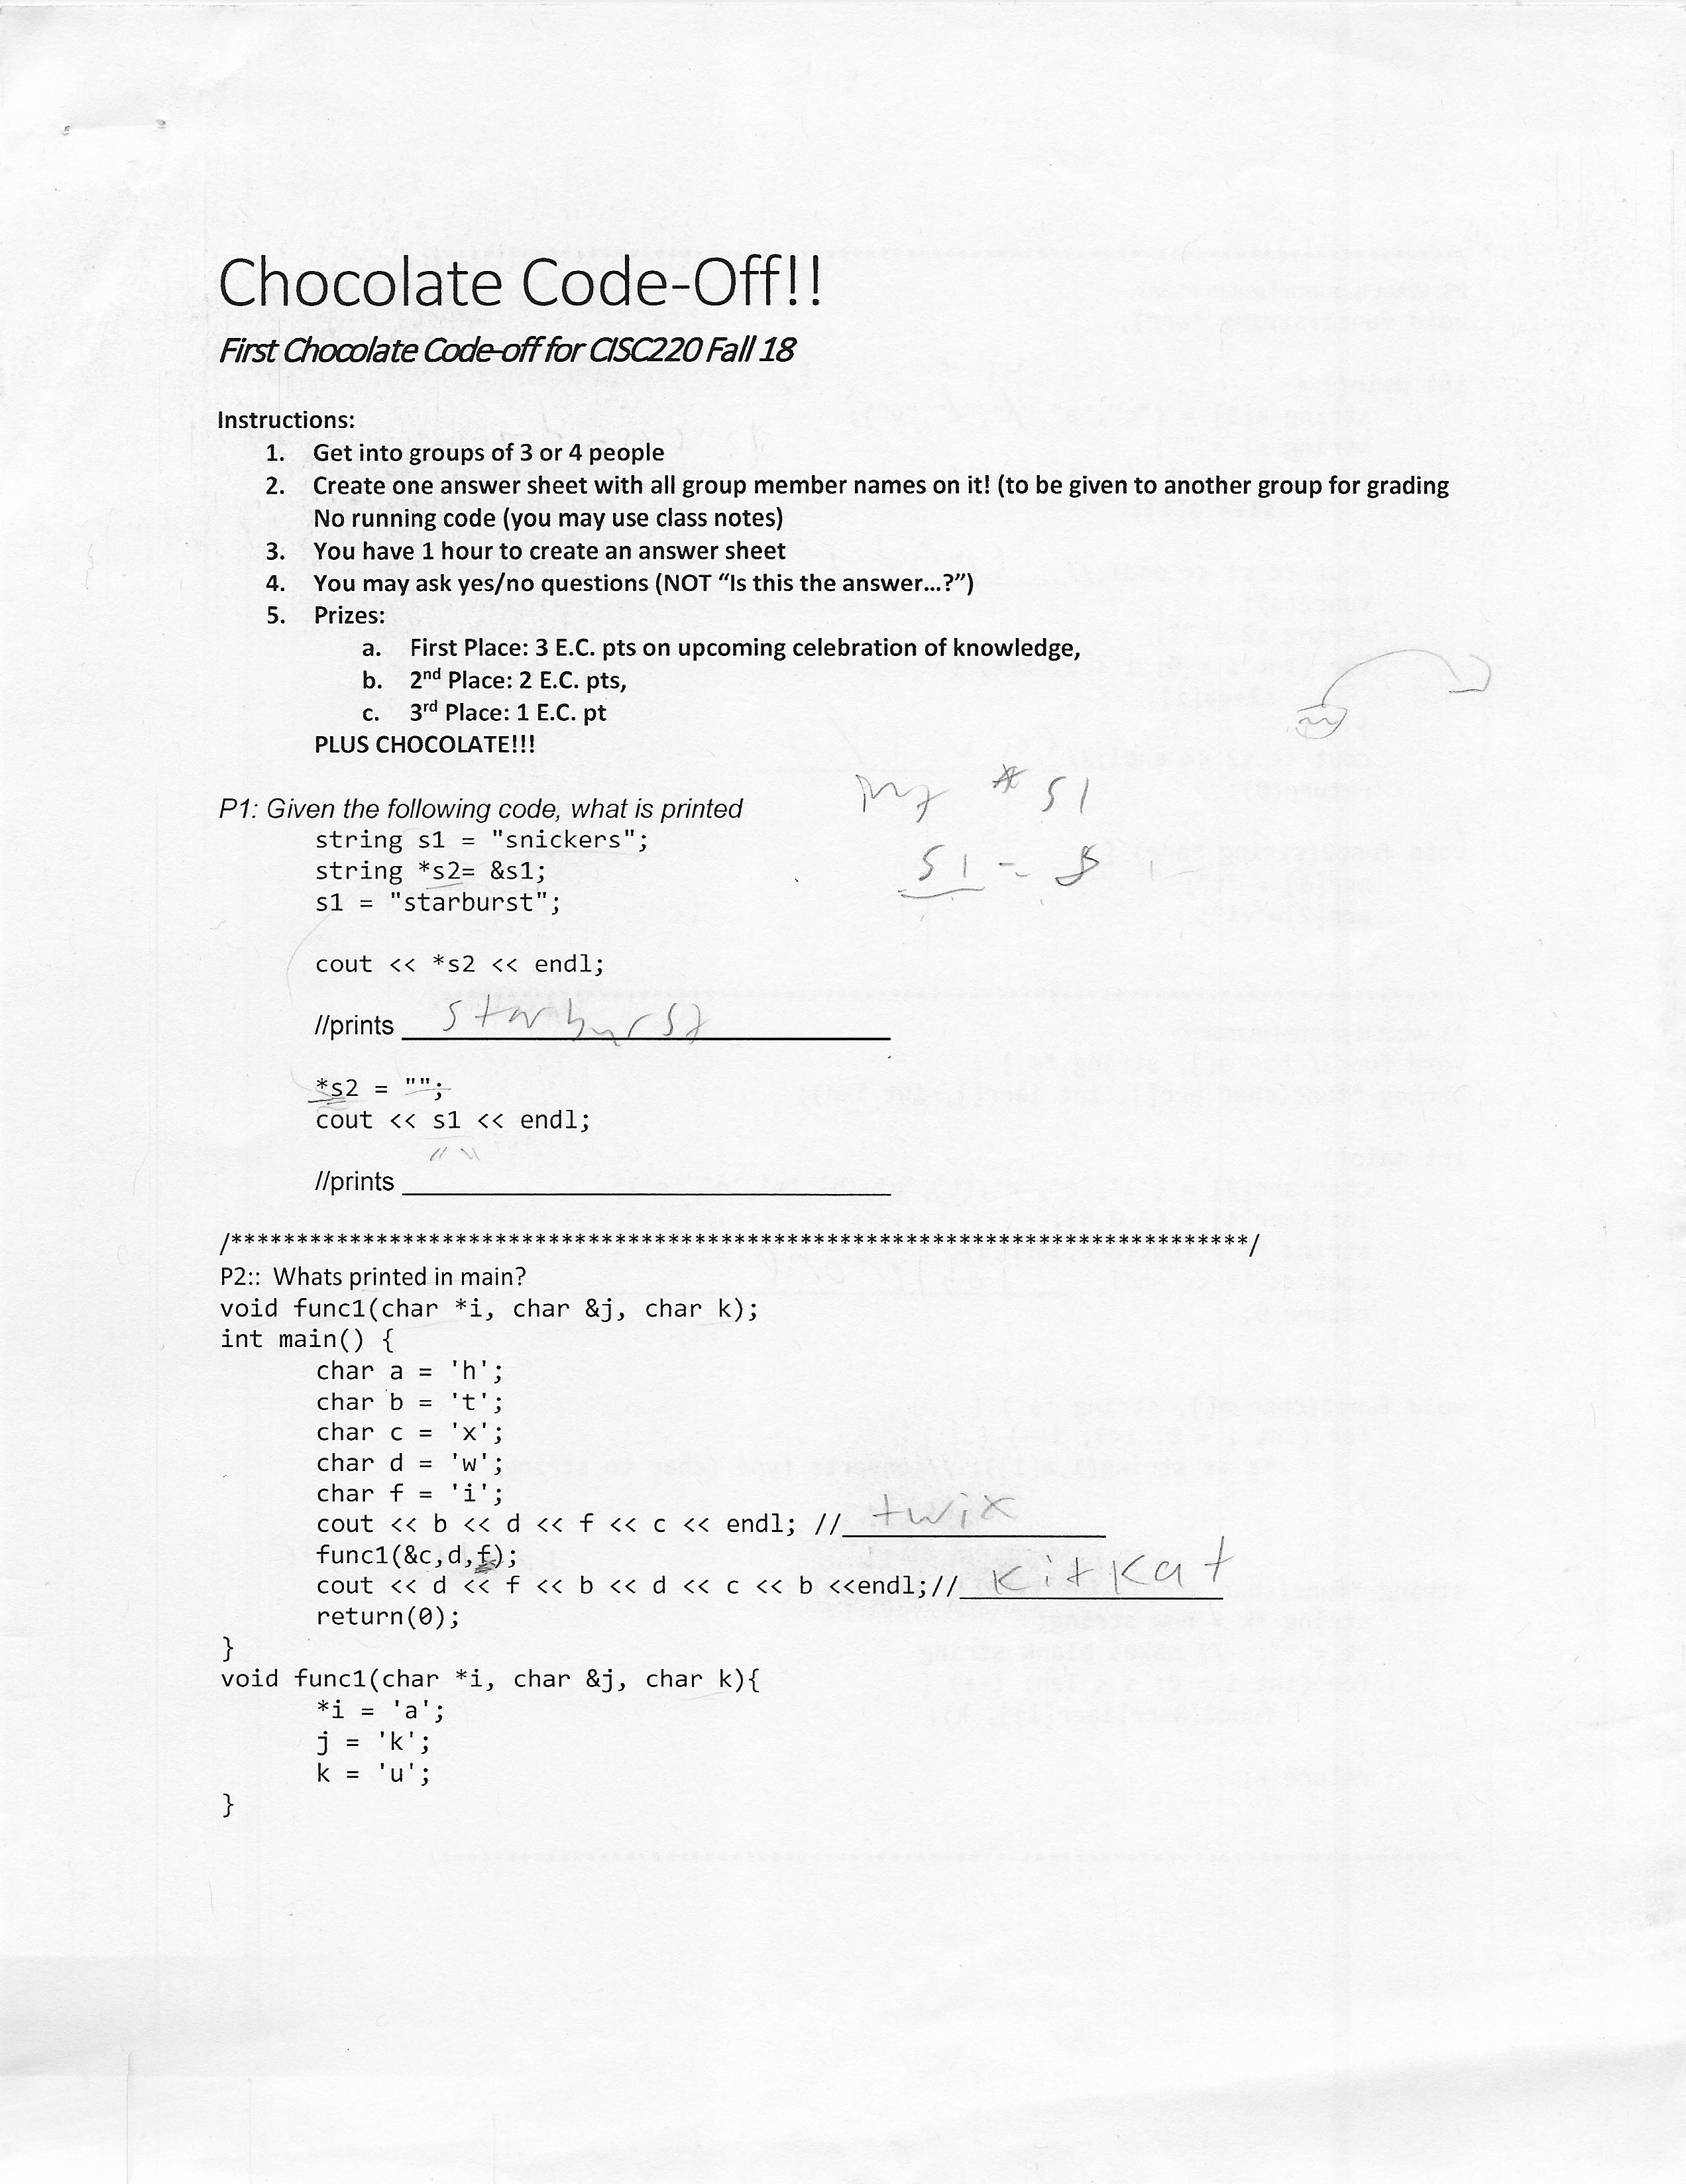 Chocolate Code-Off!!
First Chocolate Code-off for CISC220 Fall 18
Instructions:
1. Get into groups of 3 or 4 people
2. Create one answer sheet with all group member names on it! (to be given to another group for grading
No running code (you may use class notes)
3. You have 1 hour to create an answer sheet
4. You may ask yes/no questions (NOT “Is this the answer…?”)
5. Prizes:
a. First Place: 3 E.C. pts on upcoming celebration of knowledge,
b. 2nd Place: 2 E.C. pts,
c. 3rd Place: 1 E.C. pt
PLUS CHOCOLATE!!!
* s1
P1: Given the following code, what is printed
string s1 = "snickers";
string *s2= &s1;
s1 =
s1 = "starburst";
cout << *s2 << endl;
//prints starburst
*s2 = "";
cout << s1 << endl;
" "
//prints
/******************************************************************************/
P2:: Whats printed in main?
void func1(char *i, char &j, char k);
int main() {
char a = 'h';
char b = 't';
char c = 'x';
char d = 'w';
char f = 'i';
cout << b << d << f << c << endl; // twix
func1(&c,d,f);
cout << d << f << b << d << c << b <<endl;// kitkat
return(0);
}
void func1(char *i, char &j, char k){
*i = 'a';
j = 'k';
k = 'u';
}